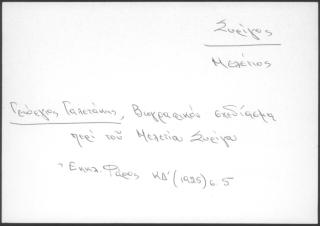 Συρίγος
Μελέτιος
Γεώργιος Γαλιτάκης, Βιογραφικόν σχεδίασμα
περί τοῦ Μελετίου Συρίγου
Εκκλ. Φάρος ΚΔ' (1925) σ. 5